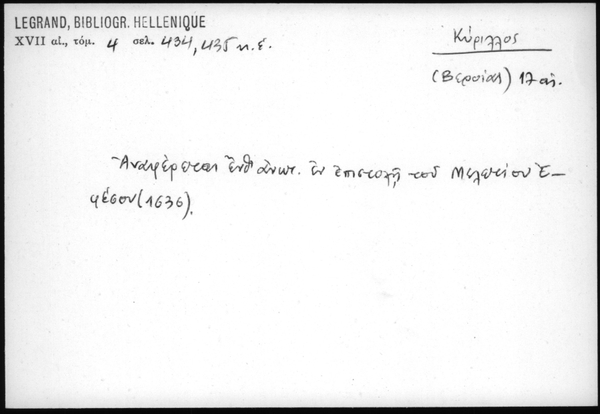 LEGRAND, BIBLIOGR. HELLENIQUE
XVII αἰ., τόμ. 4 σελ. 434, 435 κ.ἑ.
Κύριλλος
(Βεροίας) 17 αἰ.
Ἀναφέρεται ἔνθ' ἀνωτ. ἐν ἐπιστολῇ τοῦ Μελετίου Ἐ-
φέσου (1636).